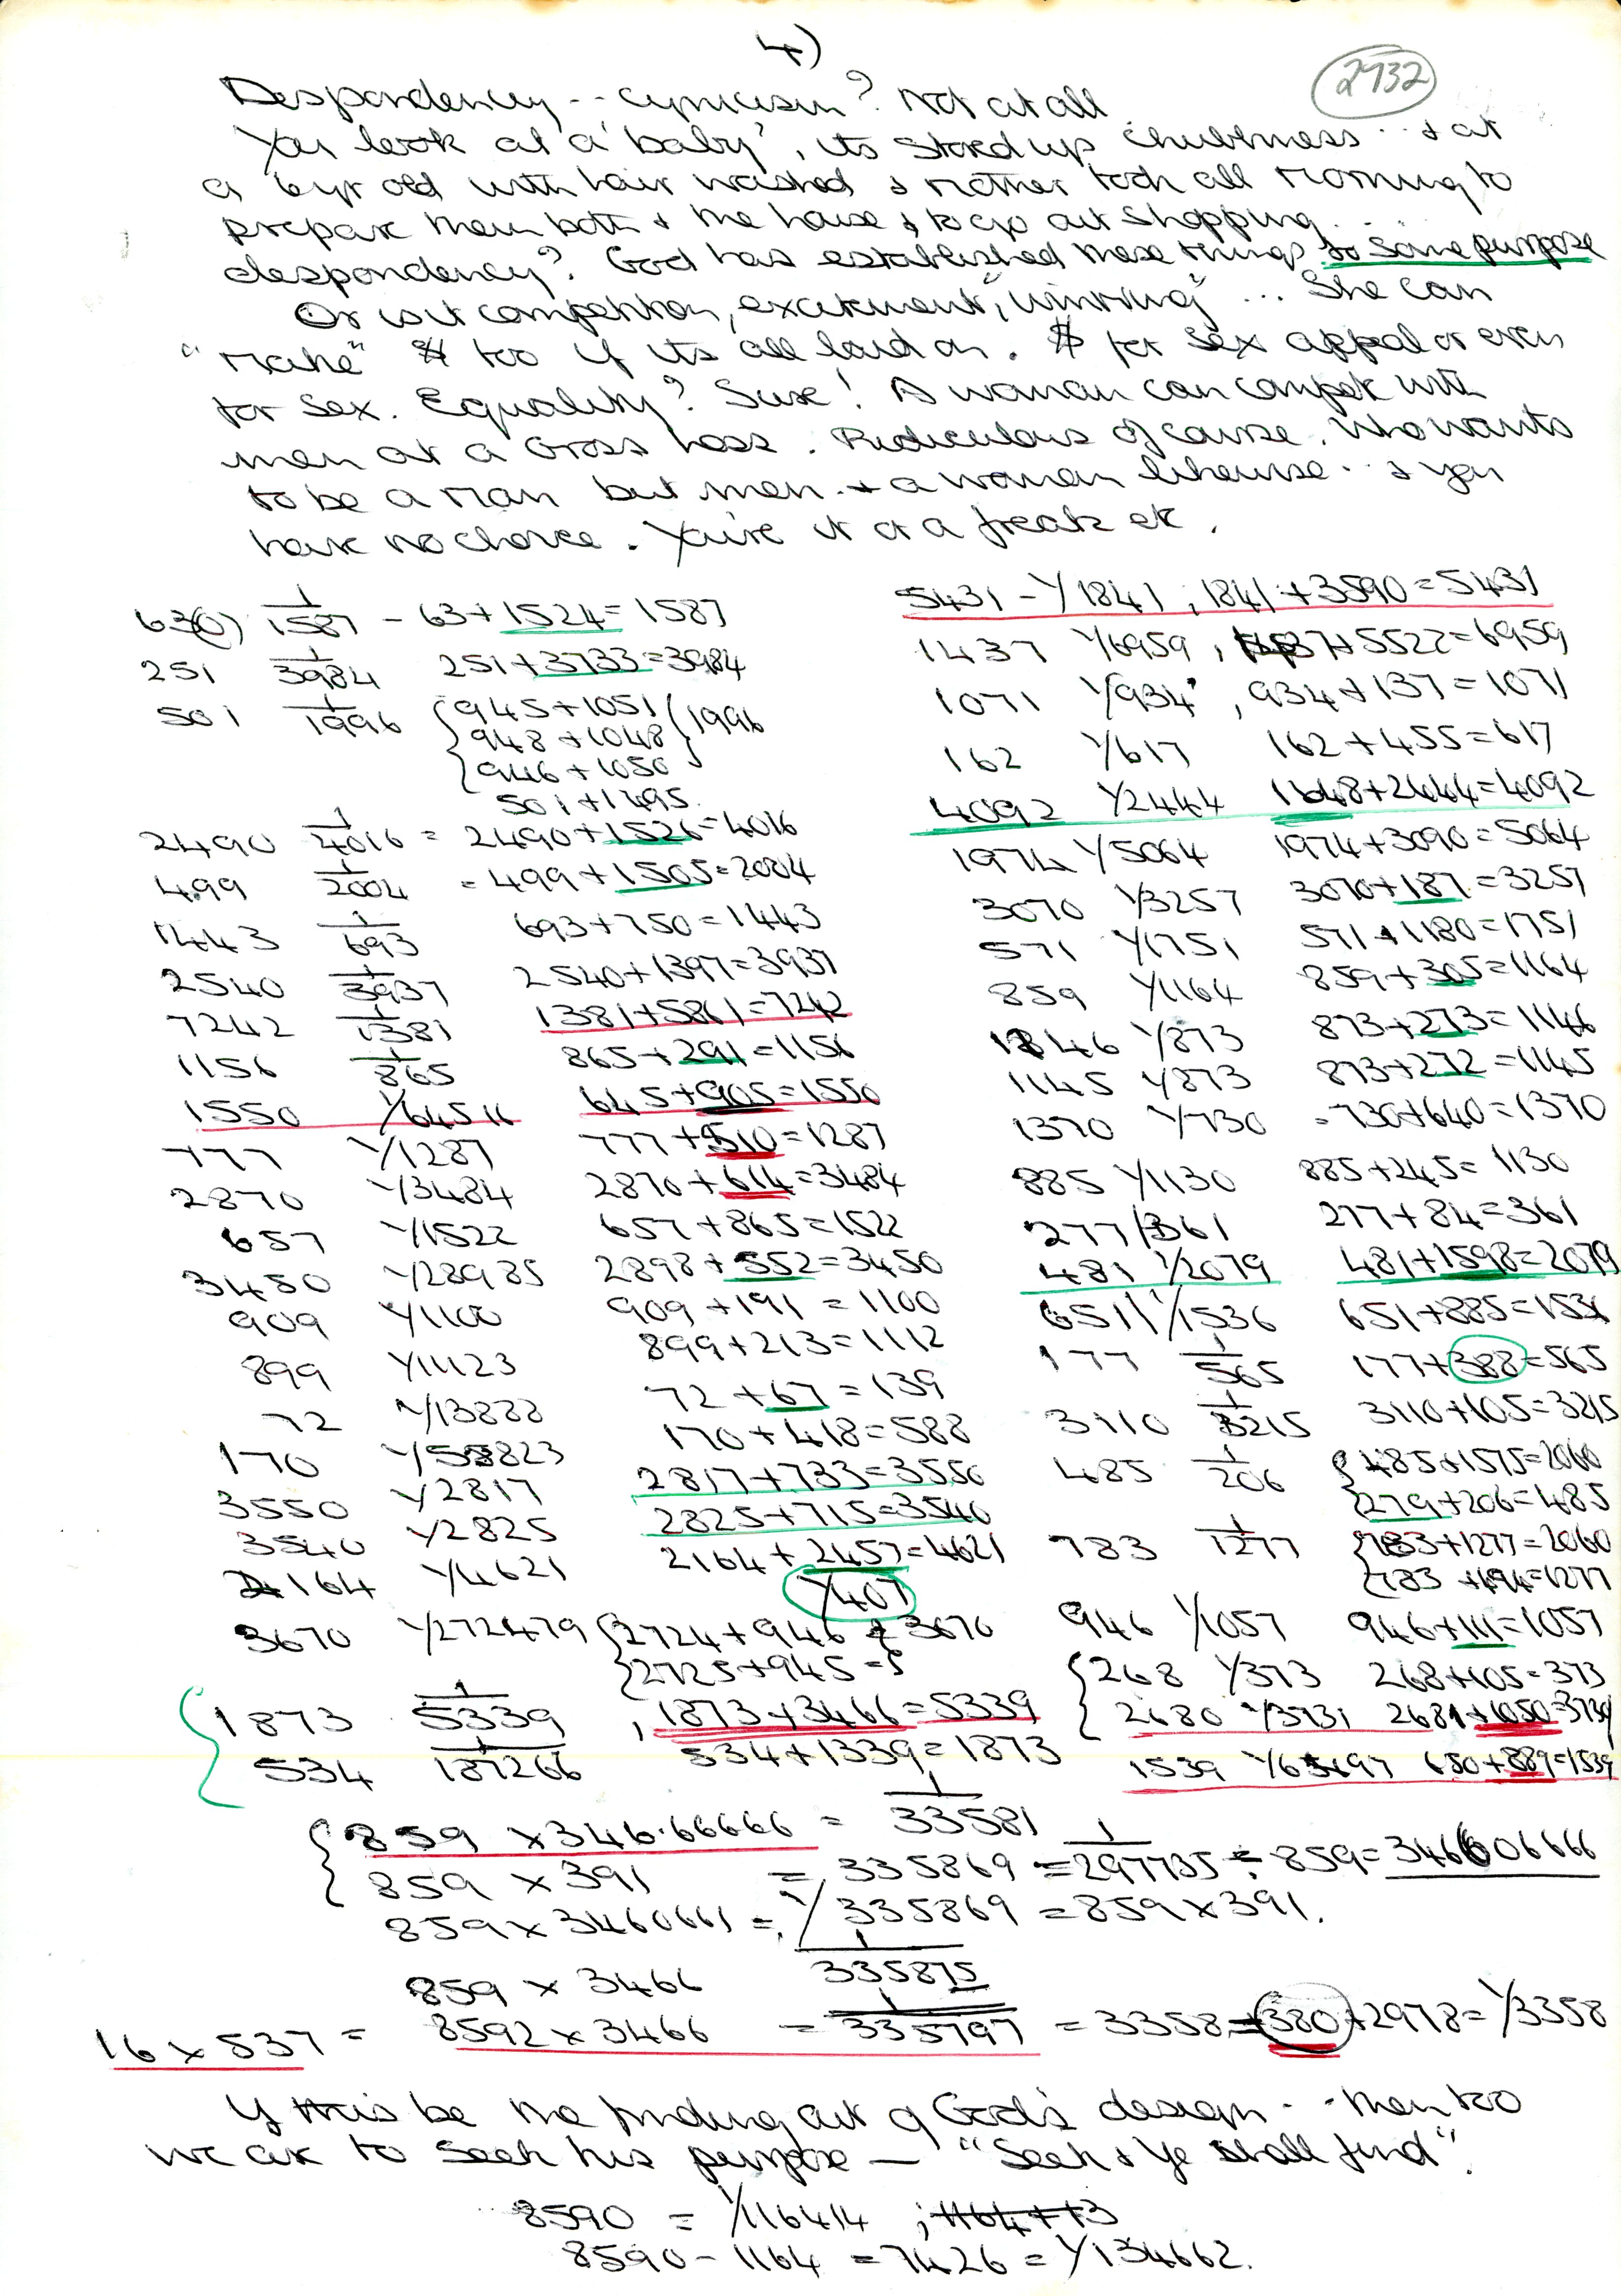 4)
2732
Despondency -- cynicism? Not at all
You look at a 'baby', its stored up chubbiness .. & at
a 6yr old with hair washed & mother took all morning to
prepare them both & the house & to go out shopping ...
despondency? God has established these things to some purpose
Or is it competition, excitement, "winning" ... She can
"make" $ too if its all laid on. $ for sex appeal or even
for sex. Equality? Sure! A woman can compete with
men at a Gross Loss. Ridiculous of course. Who wants
to be a man but men. & a woman likewise .. & you
have no choice. You're it or a freak etc.
63(0) 1/1587 - 63+1524=1587
251 1/3984 251+3733=3984
501 1/1996 {945+1051} 1996
{948+1048}
{946+1050}
501+1495
2490 1/4016 = 2490+1526=4016
499 1/2004 = 499+1505=2004
1443 1/693 693+750=1443
2540 1/3937 2540+1397=3937
7242 1/1381 1381+5861=7242
1156 1/865 865+291=1156
1550 1/64516 645+905=1550
777 1/1287 777+510=1287
2870 1/3484 2870+614=3484
657 1/1522 657+865=1522
3450 1/28985 2898+552=3450
909 1/1100 909+191=1100
899 1/11123 899+213=1112
72 1/13888 72+67=139
170 1/58823 170+418=588
3550 1/2817 2817+733=3550
3540 1/2825 2825+715=3540
2164 1/4621 2164+2457=4621
1/407
3670 1/272479 {2724+946 } = 3670
{2725+945 = }
{1873 1/5339 , 1873+3466=5339
534 1/187266 534+1339=1873
5431 - 1/1841 ; 1841+3590=5431
1437 1/6959 , 1437+5522=6959
1071 1/934 , 934+137=1071
162 1/617 162+455=617
4092 1/2444 1648+2444=4092
1974 1/5064 1974+3090=5064
3070 1/3257 3070+187=3257
571 1/1751 571+1180=1751
859 1/1164 859+305=1164
1146 1/873 873+273=1146
1145 1/873 873+272=1145
1370 1/730 = 730+640=1370
885 1/1130 885+245=1130
277 1/361 277+84=361
481 1/2079 481+1598=2079
651 1/1536 651+885=1536
177 1/565 177+388=565
3110 1/3215 3110+105=3215
485 1/206 {485+1575=2060
{279+206=485
783 1/1277 {783+1277=2060
{783+494=1277
946 1/1057 946+111=1057
{268 1/373 268+105=373
{2680 1/3731 2681+1050=3731
1539 1/65497 650+889=1539
{859 x 346.66666 = 1/33581
859 x 391 = 335869 = 1/297735 ÷ 859=346606666
859 x 3460661 = 1/335869 = 859 x 391.
859 x 3466 1/335875
16 x 537 = 8592 x 3466 = 1/335797 = 3358 = 380+2978= 1/3358
If this be the finding out of God's design - - then too
we are to seek his purpose — "Seek & Ye shall find".
8590 = 1/116414 ; 1164+13
8590 - 1164 = 7426 = 1/134662.